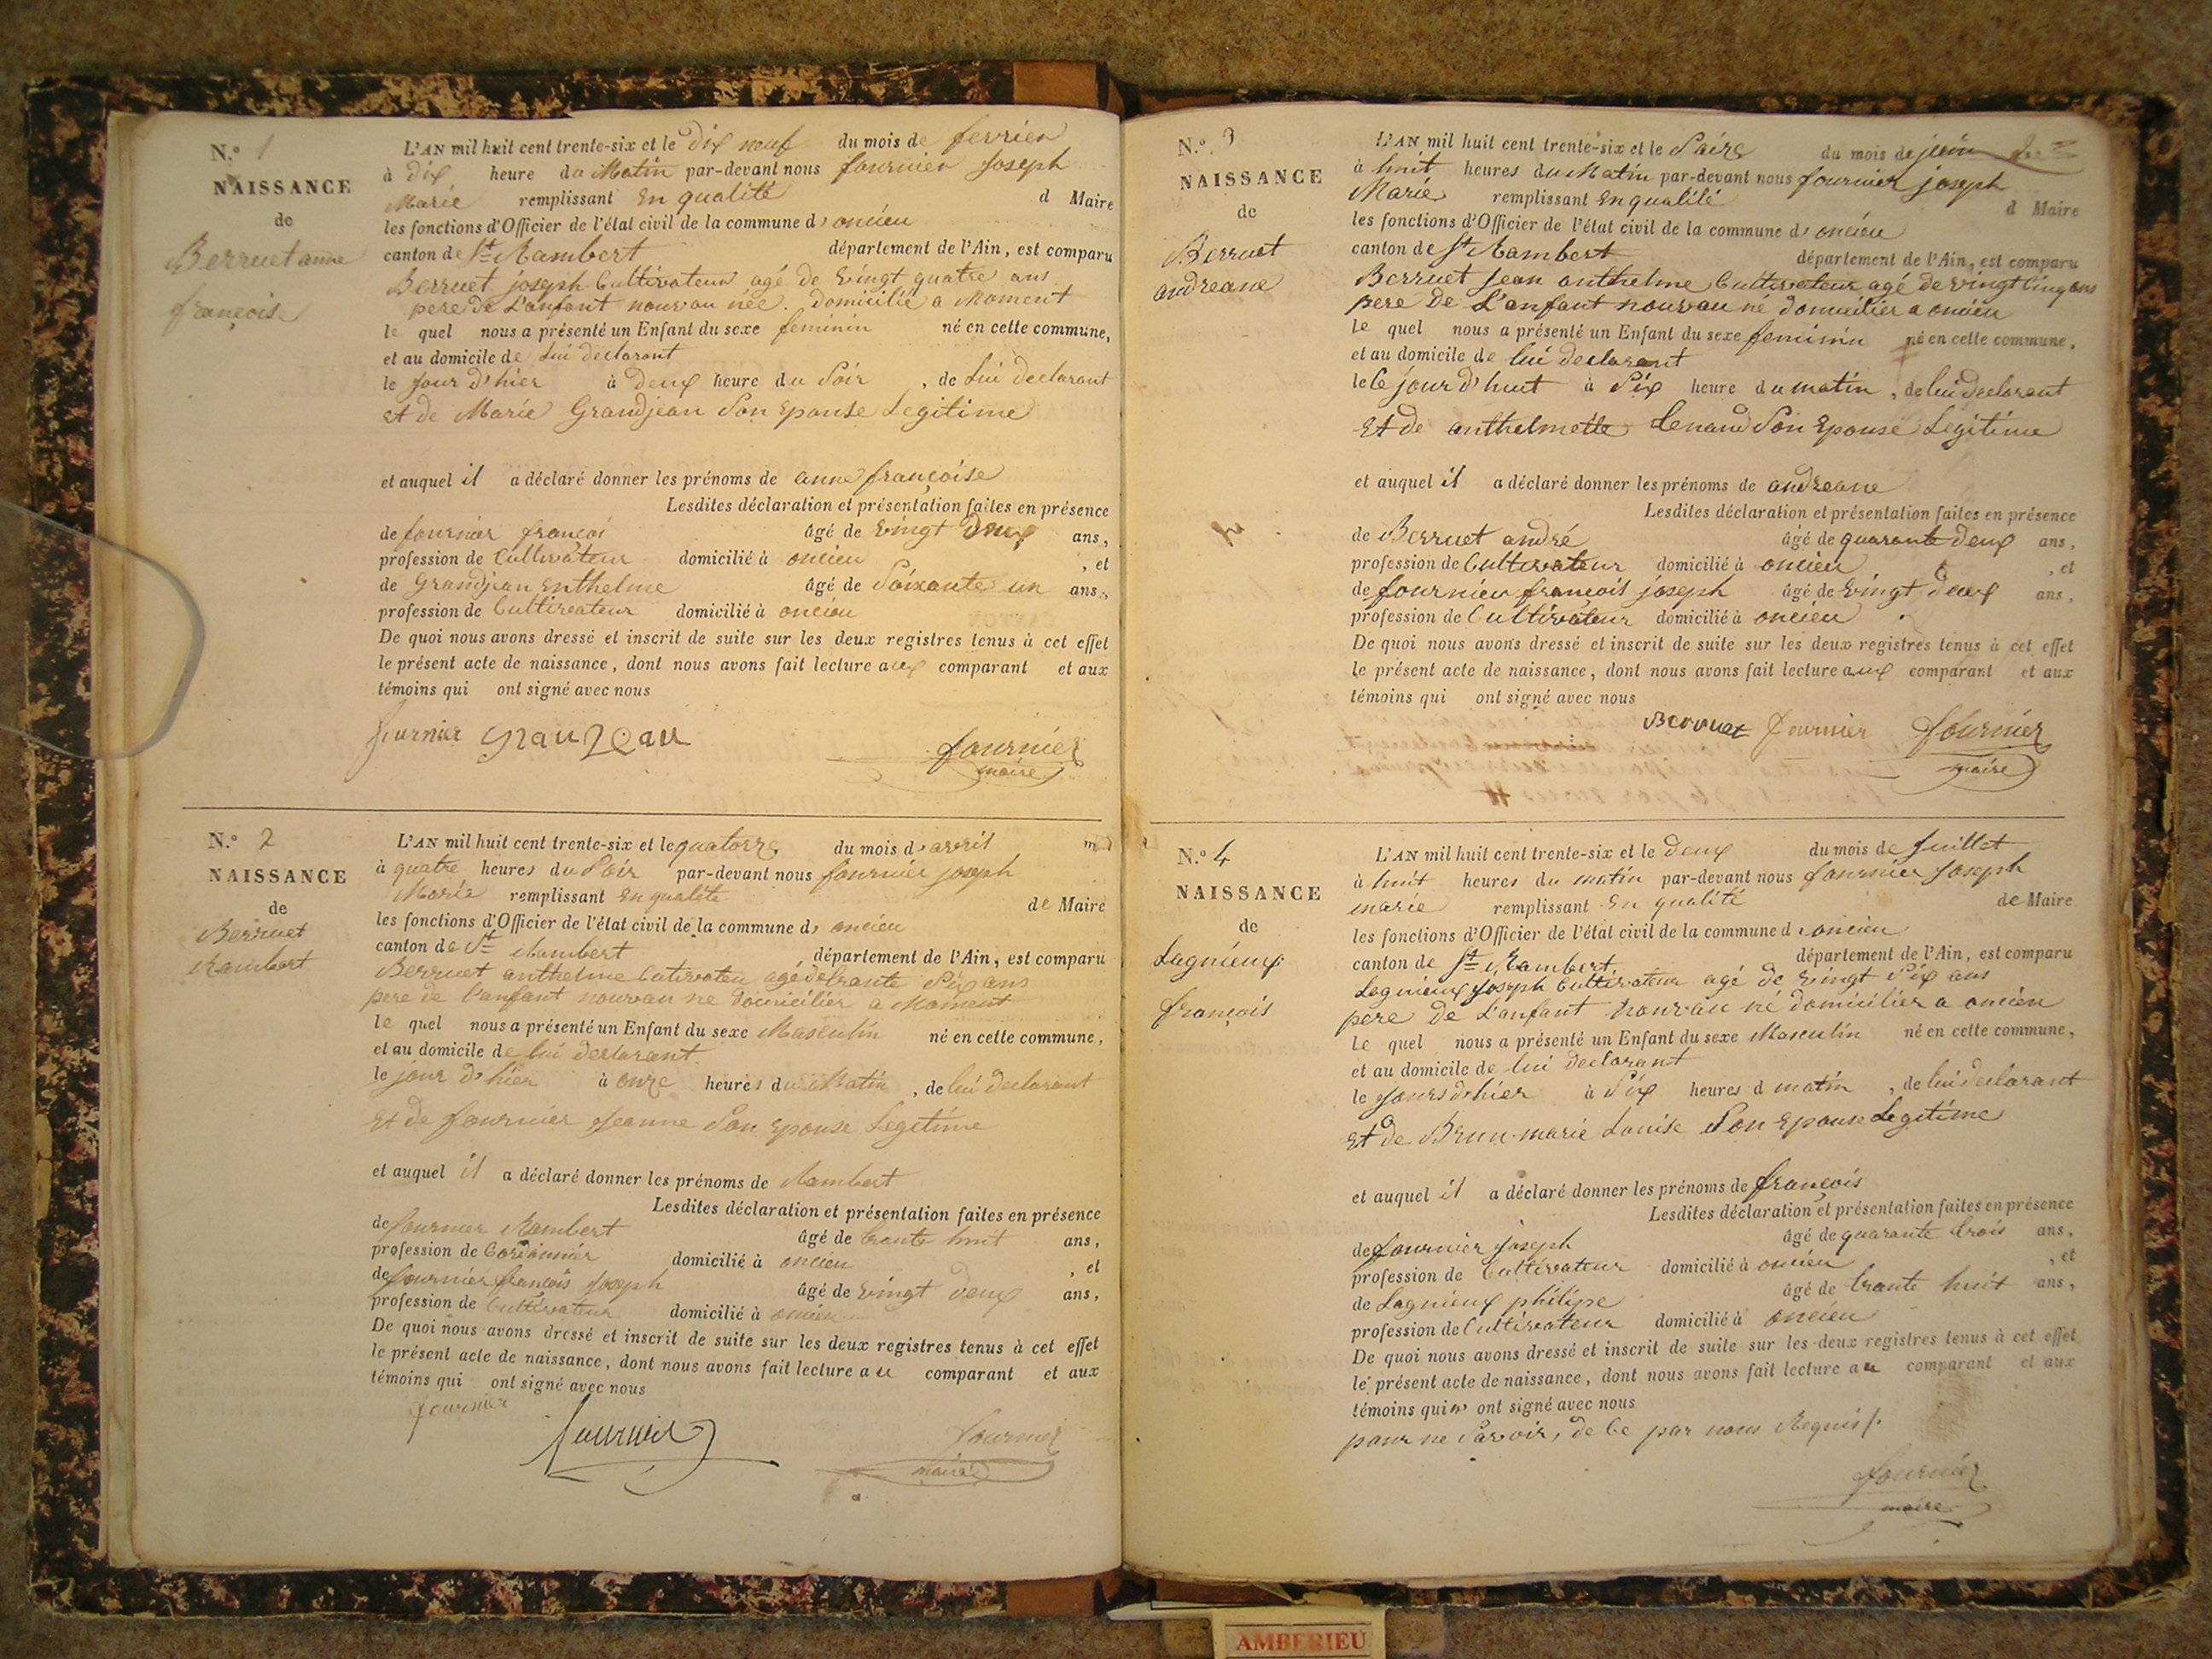 N.° 1
NAISSANCE
de
Berruet anne
françoise
L'AN mil huit cent trente-six et le dix neuf du mois de fevrier
à dix heure du Matin par-devant nous fournier Joseph
Marie remplissant En qualité d Maire
les fonctions d'Officier de l'état civil de la commune d, oncieu
canton de St Rambert département de l'Ain, est comparu
Berruet joseph Cultivateur agé de vingt quatre ans
pere de L'anfant nouvau née. domicilié a Moment
le quel nous a présenté un Enfant du sexe feminin né en cette commune,
et au domicile de Lui declarant
le jour d'hier à deux heure du Soir , de Lui declarant
et de Marie Grandjean Son Epouse Legitime
et auquel il a déclaré donner les prénoms de anne françoise
Lesdites déclaration et présentation faites en présence
de fournier françoi âgé de vingt deux ans,
profession de Cultivateur domicilié à oncieu , et
de Grandjean Enthelme âgé de Soixante un ans,
profession de Cultiveateur domicilié à oncieu
De quoi nous avons dressé et inscrit de suite sur les deux registres tenus à cet effet
le présent acte de naissance, dont nous avons fait lecture aux comparant et aux
témoins qui ont signé avec nous
fournier granjean fournier
maire
N.° 2
NAISSANCE
de
Berruet
Rambert
L'AN mil huit cent trente-six et le quatorze du mois d'avril
à quatre heures du Soir par-devant nous fournier joseph
Marie remplissant En qualité de Maire
les fonctions d'Officier de l'état civil de la commune d, oncieu
canton de St Rambert , département de l'Ain, est comparu
Berruet anthelme Cutivateu agé de trante Six ans
pere de l'anfant nouvau ne domicilier a Moment
le quel nous a présenté un Enfant du sexe Masculin né en cette commune,
et au domicile de lui declarant
le jour d'hier à onze heures du Matin , de lui declarant
et de fournier Jeanne Son Epouse Legitime
et auquel il a déclaré donner les prénoms de Rambert
Lesdites déclaration et présentation faites en présence
de fournier Rambert âgé de trante huit ans,
profession de Cordonnier domicilié à oncieu , et
de fournier françois Joseph âgé de vingt deux ans,
profession de Cultivateur domicilié à oncieu
De quoi nous avons dressé et inscrit de suite sur les deux registres tenus à cet effet
le présent acte de naissance, dont nous avons fait lecture au comparant et aux
témoins qui ont signé avec nous
fournier fournier fournier
maire
N.° 3
NAISSANCE
de
Berruet
andreane
L'AN mil huit cent trente-six et le Saize du mois de juin
à huit heures du Matin par-devant nous fournier joseph
Marie remplissant En qualité d Maire
les fonctions d'Officier de l'état civil de la commune d, oncieu
canton de St Rambert département de l'Ain, est comparu
Berruet Jean anthelme Cultivateur agé de vingt cinq ans
pere de L'anfant nouvau né domicilier a oncieu
le quel nous a présenté un Enfant du sexe feminin né en cette commune,
et au domicile de lui declarant
le Ce jour d'huit à Six heure du matin , de lui declarant
et de anthelmette Son Epouse Legitime
et auquel il a déclaré donner les prénoms de andreane
Lesdites déclaration et présentation faites en présence
de Berruet andré âgé de quarante deux ans,
profession de Cultivateur domicilié à oncieu , et
de fournier françois joseph âgé de vingt deux ans,
profession de Cultivateur domicilié à oncieu
De quoi nous avons dressé et inscrit de suite sur les deux registres tenus à cet effet
le présent acte de naissance, dont nous avons fait lecture aux comparant et aux
témoins qui ont signé avec nous
Berruet fournier fournier
maire
N.° 4
NAISSANCE
de
Lagnieux
françois
L'AN mil huit cent trente-six et le deux du mois de Juillet
à huit heures du matin par-devant nous fournier Joseph
marie remplissant En qualité de Maire
les fonctions d'Officier de l'état civil de la commune d, oncieu
canton de St Rambert département de l'Ain, est comparu
Lagnieux Joseph Cultivateur agé de vingt Six ans
pere de L'anfant nouvau né domicilier a oncieu
Le quel nous a présenté un Enfant du sexe Masculin né en cette commune,
et au domicile de lui declarant
le jours d'hier à Six heures d matin , de lui declarant
et de Brun marie Louise Son Epouse Legitime
et auquel il a déclaré donner les prénoms de françois
Lesdites déclaration et présentation faites en présence
de fournier Joseph âgé de quarante trois ans,
profession de Cultivateur domicilié à oncieu , et
de Lagnieux philipe âgé de trante huit ans,
profession de Cultivateur domicilié à oncieu
De quoi nous avons dressé et inscrit de suite sur les deux registres tenus à cet effet
le présent acte de naissance, dont nous avons fait lecture au comparant et aux
témoins qui n' ont signé avec nous
pour ne Savoir, de Ce par nous Requis
fournier
maire
AMBERIEU